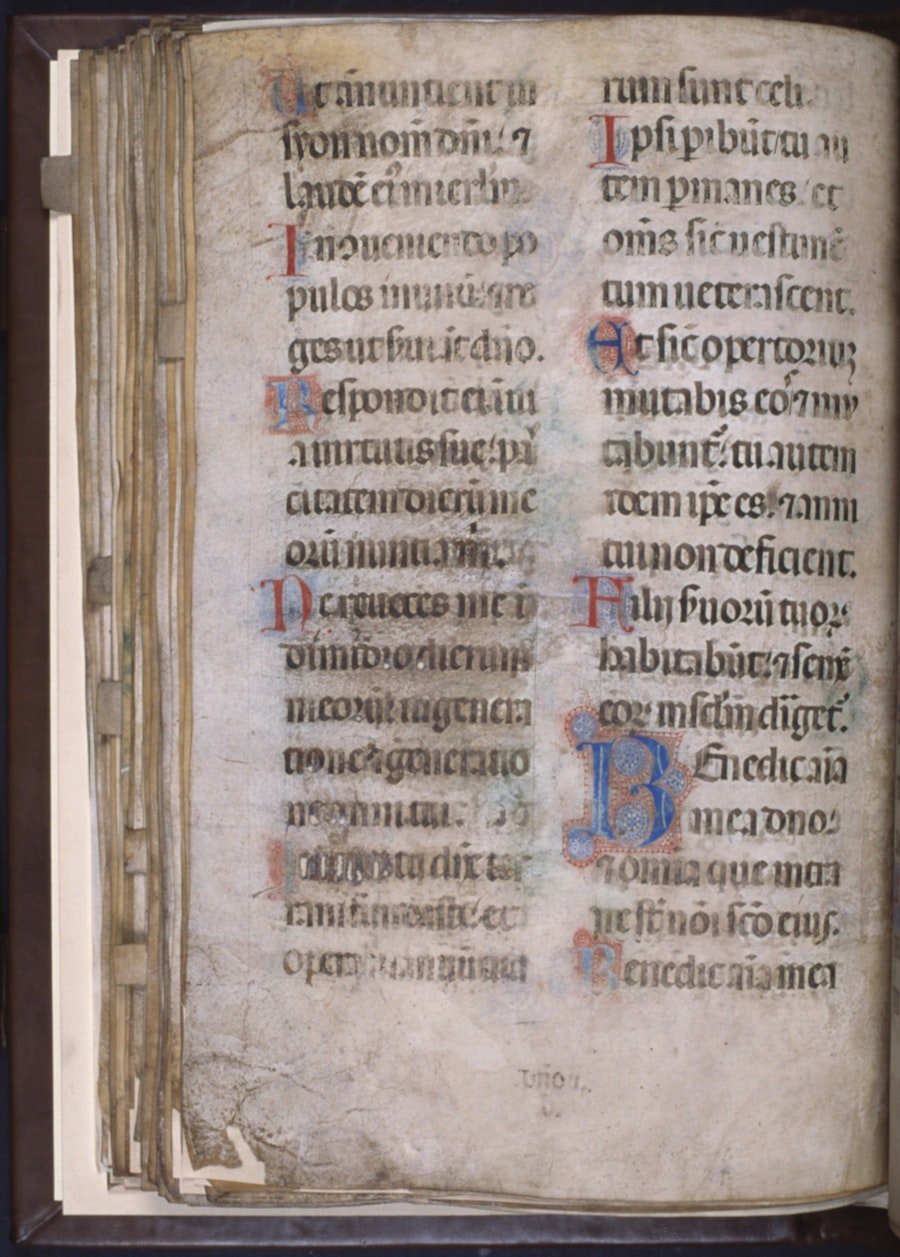 Ut annuncient in
syon nom̄ dn̄i: ⁊
laudē eiꝰ in ierl̄m
In conueniendo po
pulos in unū: ⁊ re
ges ut seruiāt dn̄o.
Respondit ei in ui
a uirtutis sue: pau
citatem dierū me
orū nuntia m̄.
Ne reuoces me ī
dimidio dierum
meorū: in genera
tionē ⁊ generatio
nē anni tui.
Initio tu dn̄e ter
ram fundasti: et
opera manuū tua
rum sunt celi.
Ipsi ꝑibūt: tu au
tem ꝑmanes: et
om̄s sicut uestimē
tum ueterascent.
Et sic̄ opertoriuꝫ
mutabis eoˢ ⁊ mu
tabunt̄: tu autem
idem ip̄e es: ⁊ anni
tui non deficient.
Filij seruorū tuoꝝ
habitabūt: ⁊ semē
eoꝝ in sc̄lm diriget̄.
Benedic aīa
mea dn̄o:
⁊ omnia que intra
me st̄ nōi sc̄o eius.
Benedic aīa mea